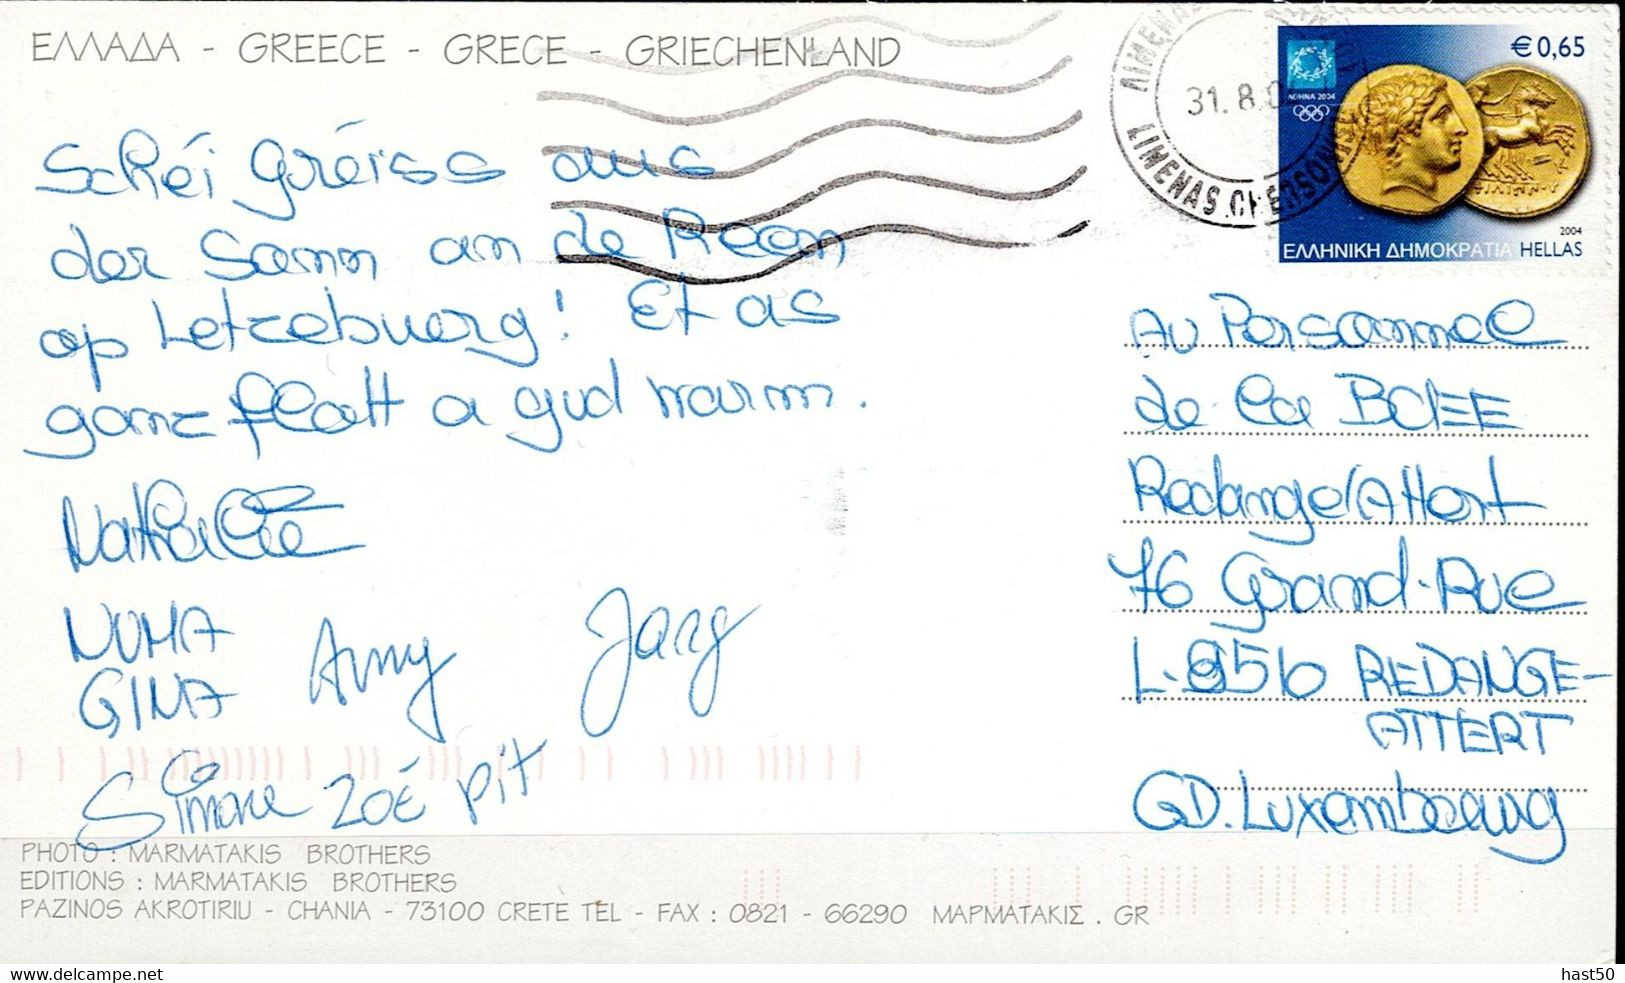 ΕΛΛΑΔΑ - GREECE - GRECE - GRIECHENLAND
Schéi Gréiss aus
der Sonn an de Reen
op Letzebuerg! Et as
ganz flott a gud warm.
Nathalie
NUMA
GINA Amy Jorg
Simone Zoé Pit
ΛΙΜΕΝΑΣ
31.8.0
LIMENAS CHERSONISOU
€0,65
ΑΘΗΝΑ 2004
ΦΙΛΙΠΠΟΥ
2004
ΕΛΛΗΝΙΚΗ ΔΗΜΟΚΡΑΤΙΑ HELLAS
Au Personnel
de la BCEE
Redange/Attert
76 Grand-Rue
L-856 REDANGE-
ATTERT
GD. Luxembourg
PHOTO : MARMATAKIS BROTHERS
EDITIONS : MARMATAKIS BROTHERS
PAZINOS AKROTIRIU - CHANIA - 73100 CRETE TEL - FAX : 0821 - 66290 ΜΑΡΜΑΤΑΚΙΣ . GR
hast50